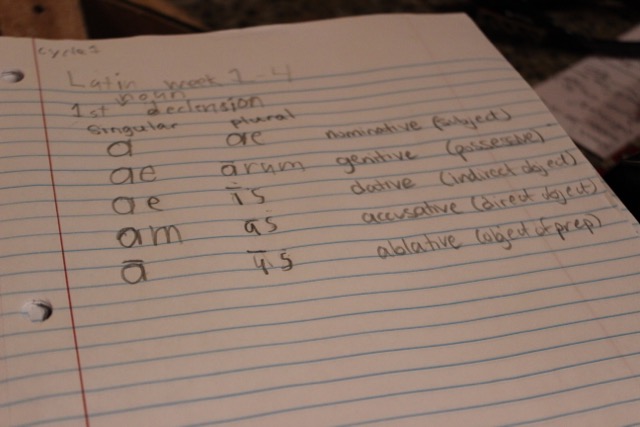 Cycle 3
Latin week 1-4
noun
1st declension
singular plural
a ae nominative (subject)
ae ārum genitive (possessive)
ae īs dative (indirect object)
am ās accusative (direct object)
ā īs ablative (object of prep)